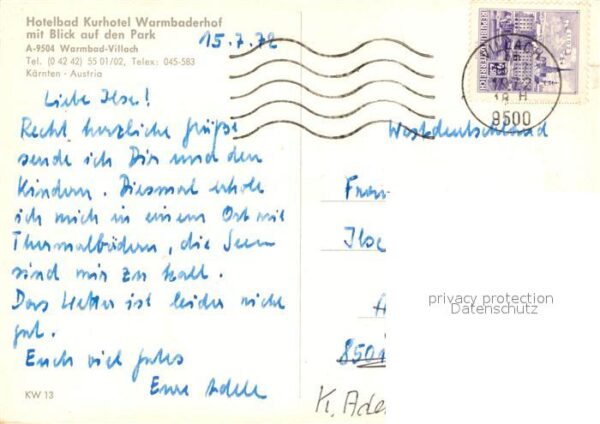 Hotelbad Kurhotel Warmbaderhof
mit Blick auf den Park
A-9504 Warmbad-Villach
Tel. (0 42 42) 55 01/02, Telex: 045-583
Kärnten - Austria
15.7.72
Liebe Ilse!
Recht herzliche Grüße
sende ich Dir und den
Kindern. Diesmal erhole
ich mich in einem Ort mit
Thermalbädern, die Seen
sind mir zu kalt.
Das Wetter ist leider nicht
gut.
Euch viel gutes
Eure Adele
KW 13
REPUBLIK ÖSTERREICH
VILLACH
9500
Westdeutschland
Frau
Ilse
privacy protection
Datenschutz
K. Ade